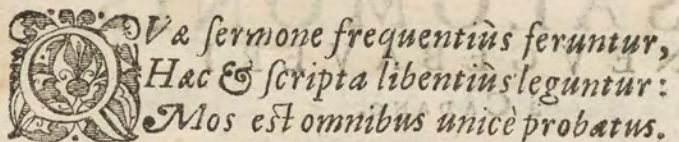 QVæ ſermone frequentiùs feruntur,
Hæc & ſcripta libentiùs leguntur:
Mos eſt omnibus unicè probatus.